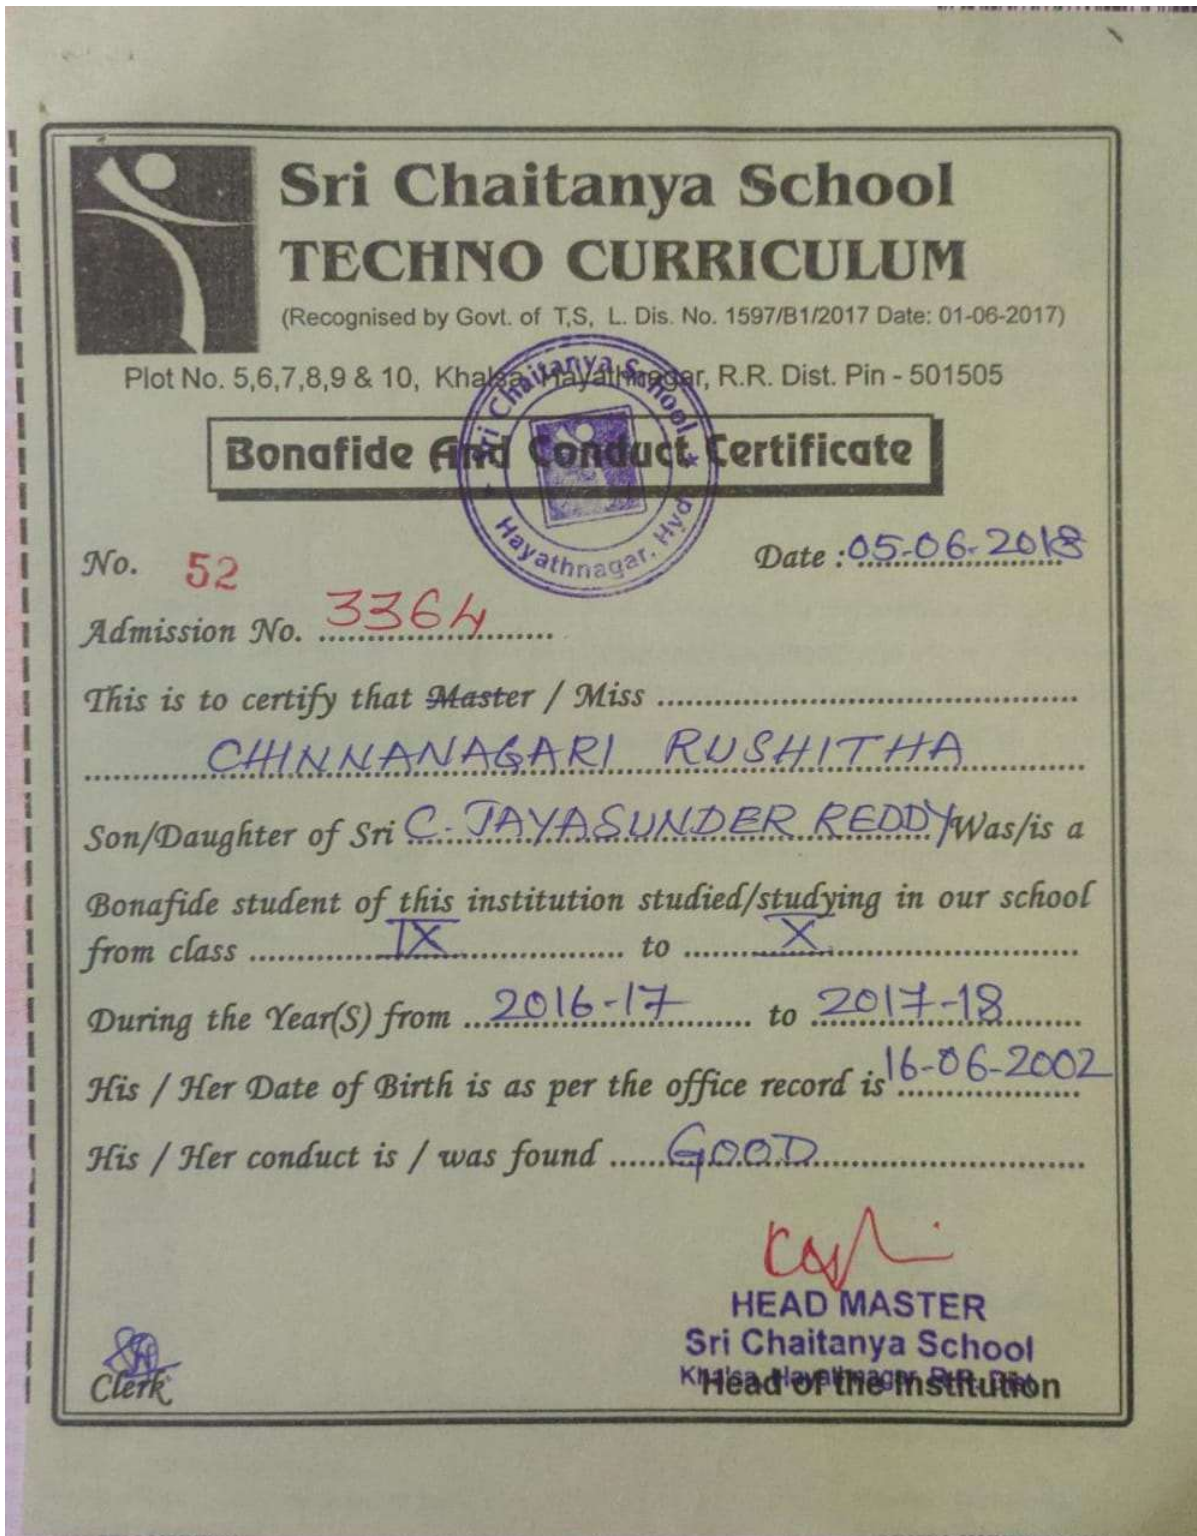 Sri Chaitanya School
TECHNO CURRICULUM
(Recognised by Govt. of T,S, L. Dis. No. 1597/B1/2017 Date: 01-06-2017)
Plot No. 5,6,7,8,9 & 10, Khalsa, Hayathnagar, R.R. Dist. Pin - 501505
Sri Chaitanya School
Hayathnagar, Hyd
Bonafide And Conduct Certificate
No. 52 Date : 05-06-2018
Admission No. 3364
This is to certify that Master / Miss
CHINNANAGARI RUSHITHA
Son/Daughter of Sri C. JAYASUNDER REDDY Was/is a
Bonafide student of this institution studied/studying in our school
from class IX to X
During the Year(S) from 2016-17 to 2017-18
His / Her Date of Birth is as per the office record is 16-06-2002
His / Her conduct is / was found GOOD
HEAD MASTER
Sri Chaitanya School
Khalsa, Hayathnagar, R.R. Dist.
Clerk Head of the Institution